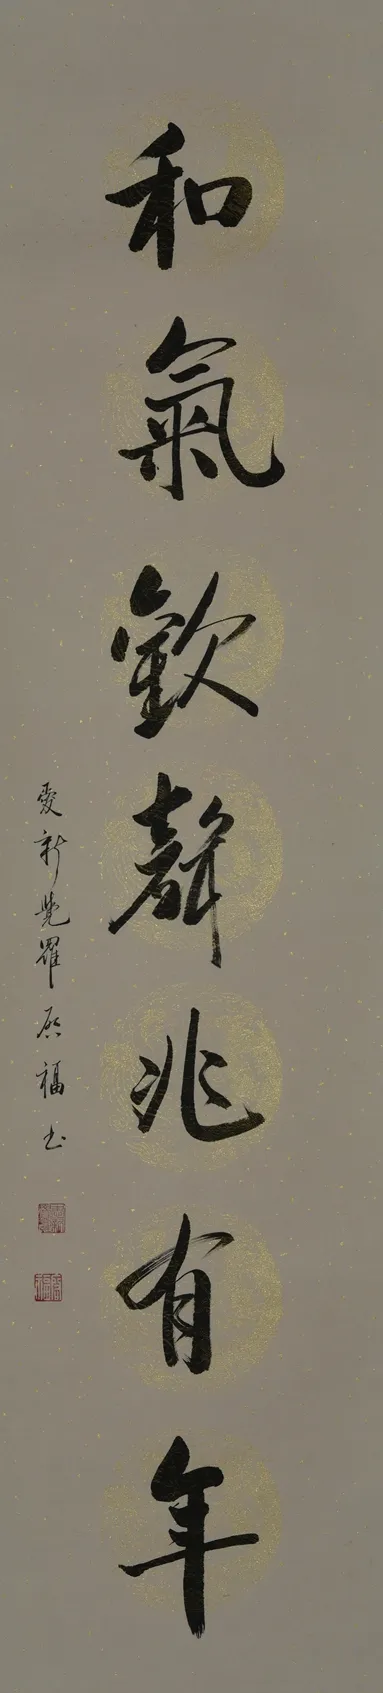 和氣歡聲兆有年
愛新覺羅啟福书